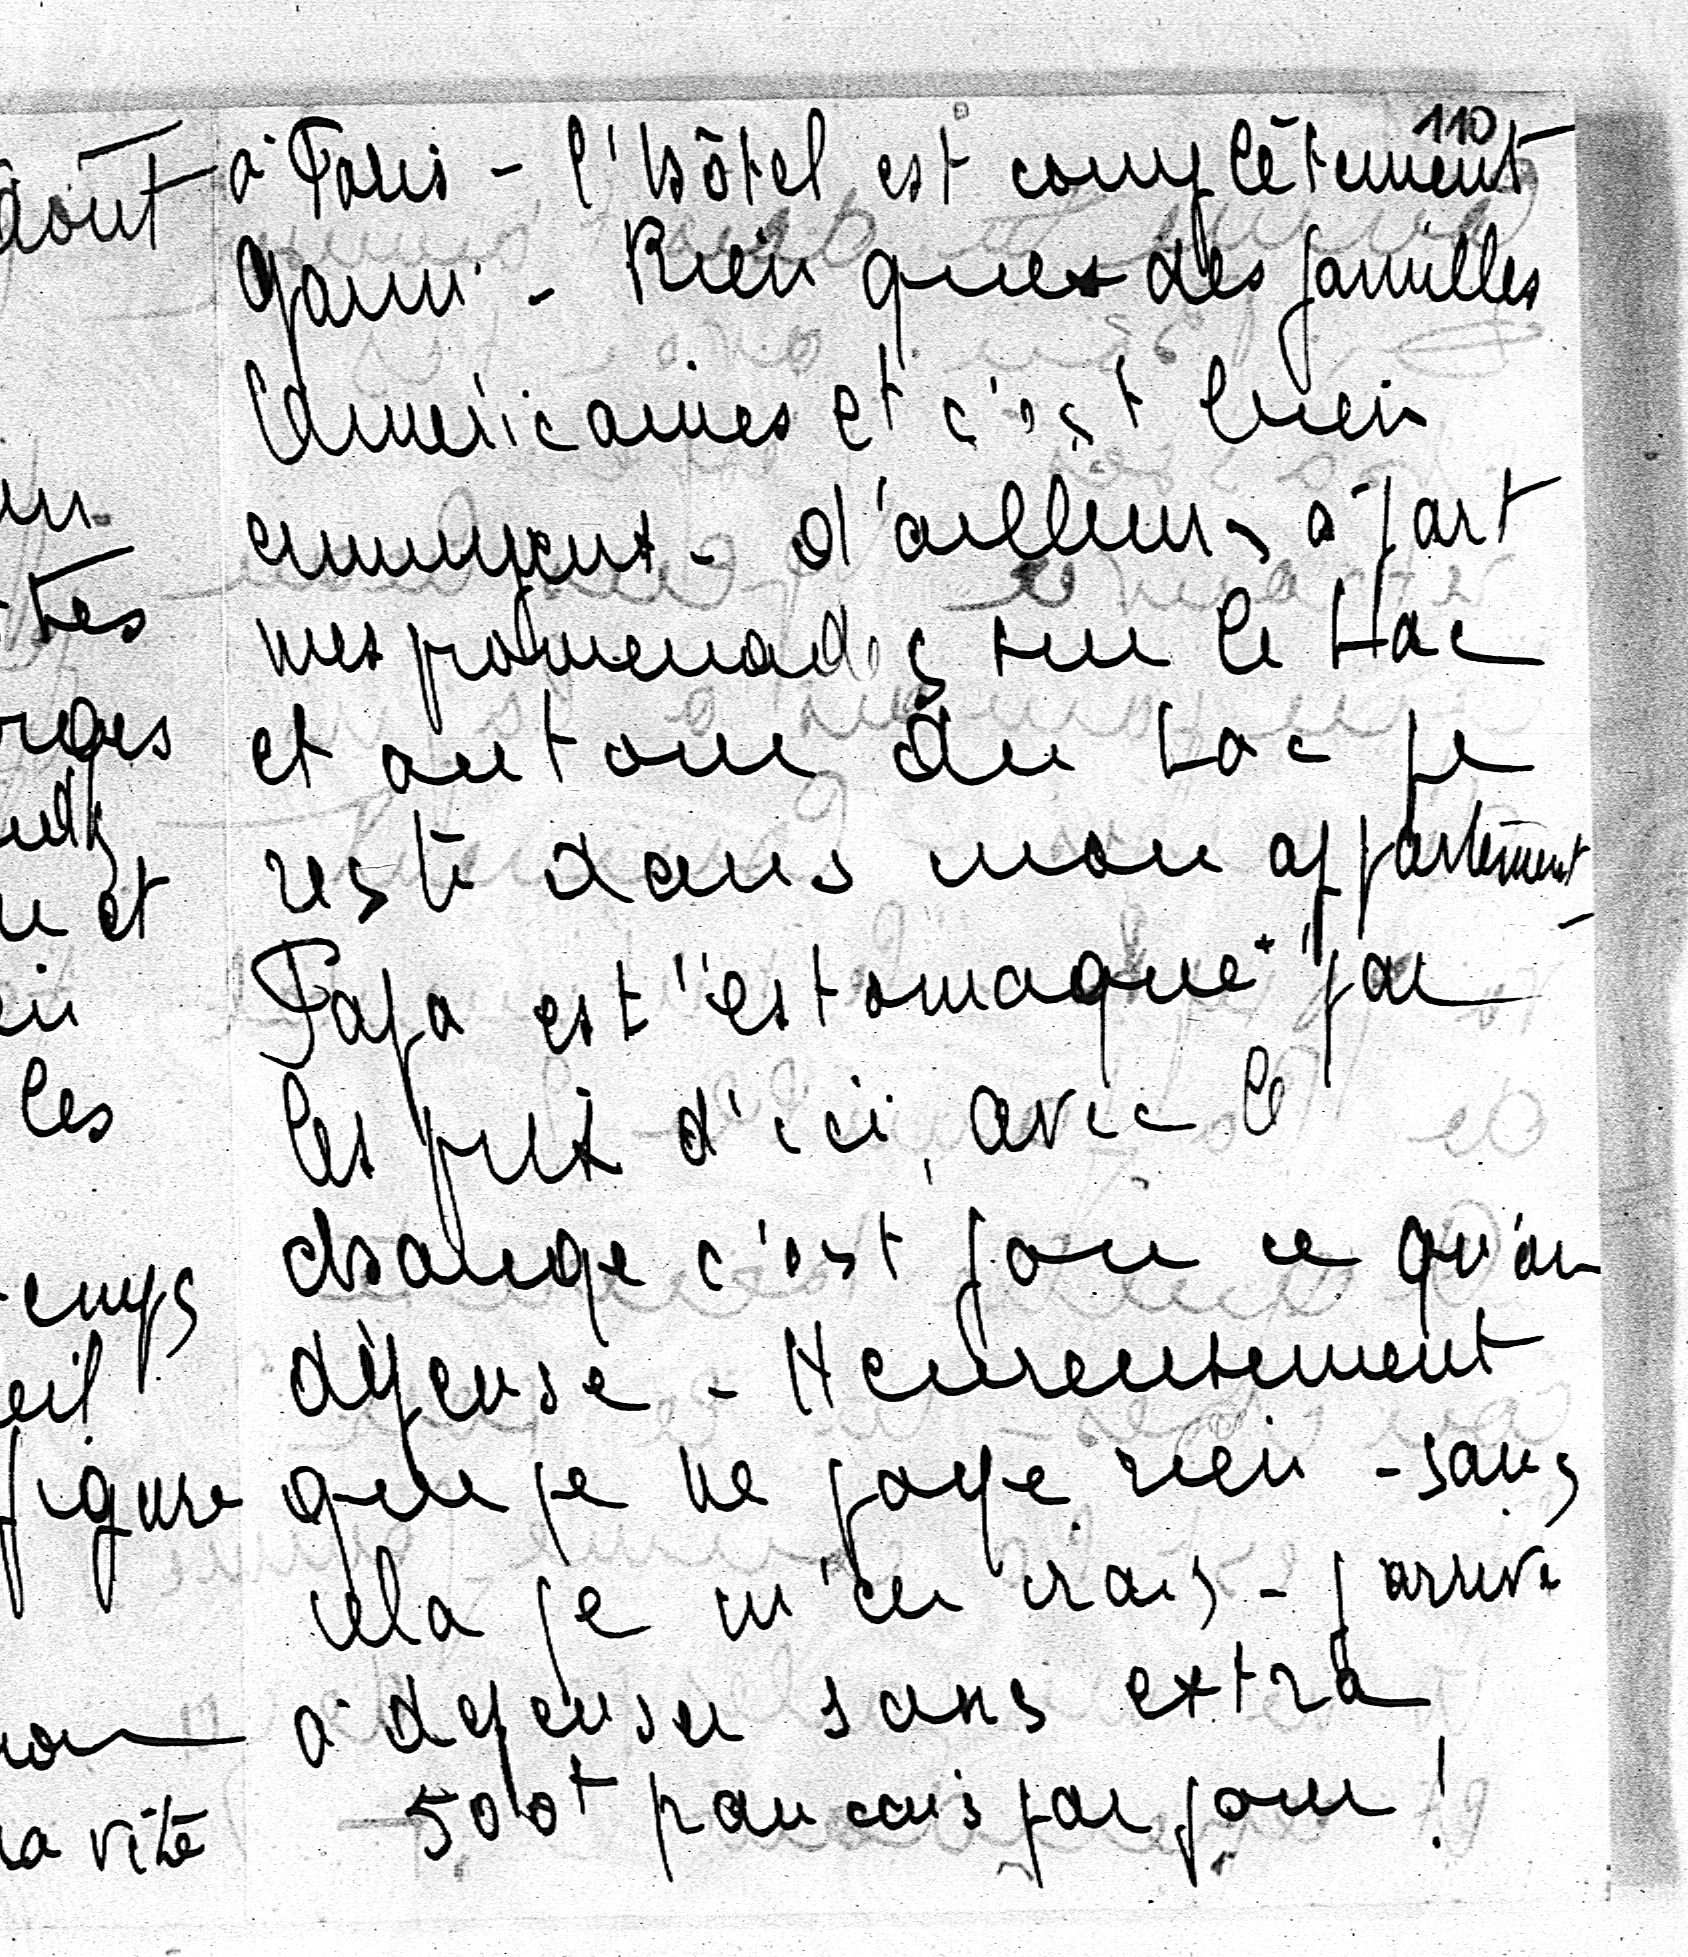 110
à Paris - l'hôtel est complètement
garni - Rien que des familles
Américaines et c'est bien
ennuyeux - d'ailleurs à part
mes promenades sur le Lac
et autour du Lac je
reste dans mon appartement
Papa est "estomaqué" par
les prix d'ici, avec le
change c'est fou ce qu'on
dépense - Heureusement
que je ne paye rien - sans
cela je m'en irais - j'arrive
à dépenser sans extra
500f français par jour !
août
tes
et
les
figure
vite